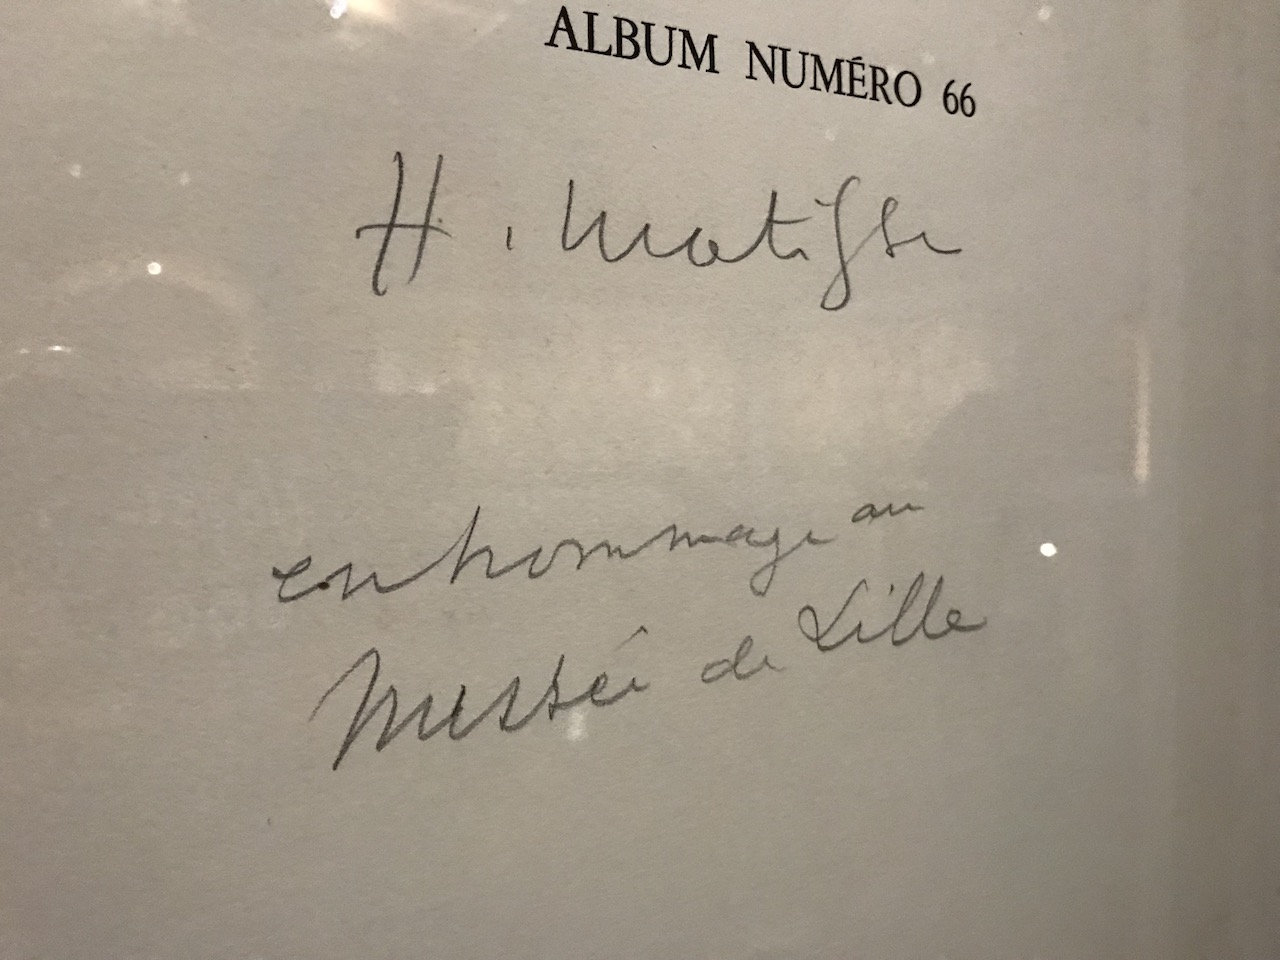 ALBUM NUMÉRO 66
H. Matisse
en hommage au
Musée de Lille